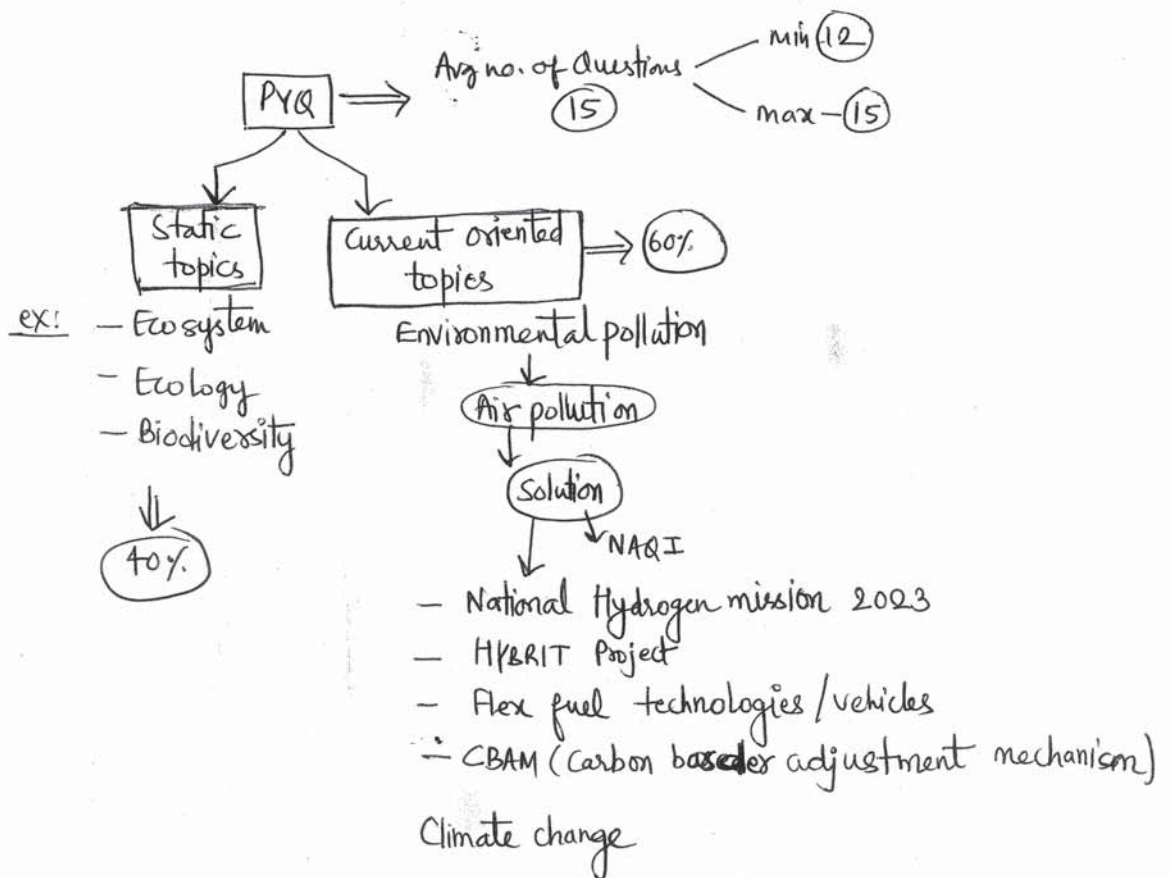 PYQ
Avg no. of Questions
15
min 12
max - 15
Static
topics
Current oriented
topics
60%
ex:
- Ecosystem
- Ecology
- Biodiversity
40%
Environmental pollution
Air pollution
Solution
NAQI
- National Hydrogen mission 2023
- HYBRIT Project
- Flex fuel technologies / vehicles
- CBAM (Carbon border adjustment mechanism)
Climate change